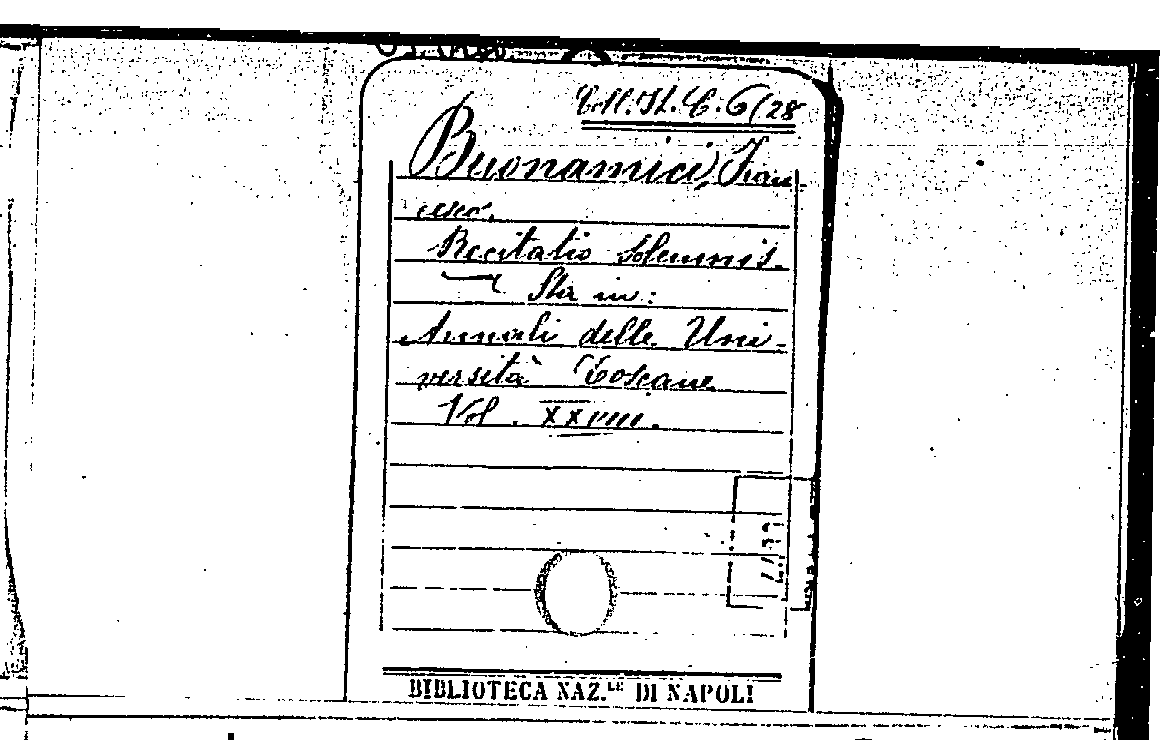 Coll. It. C. 6(28
Buonamici, Fran-
cesco.
Recitatio solemnis.
Sta in:
Annali delle Uni-
versità Toscane
Vol. XXVIII.
BIBLIOTECA NAZ.LE DI NAPOLI